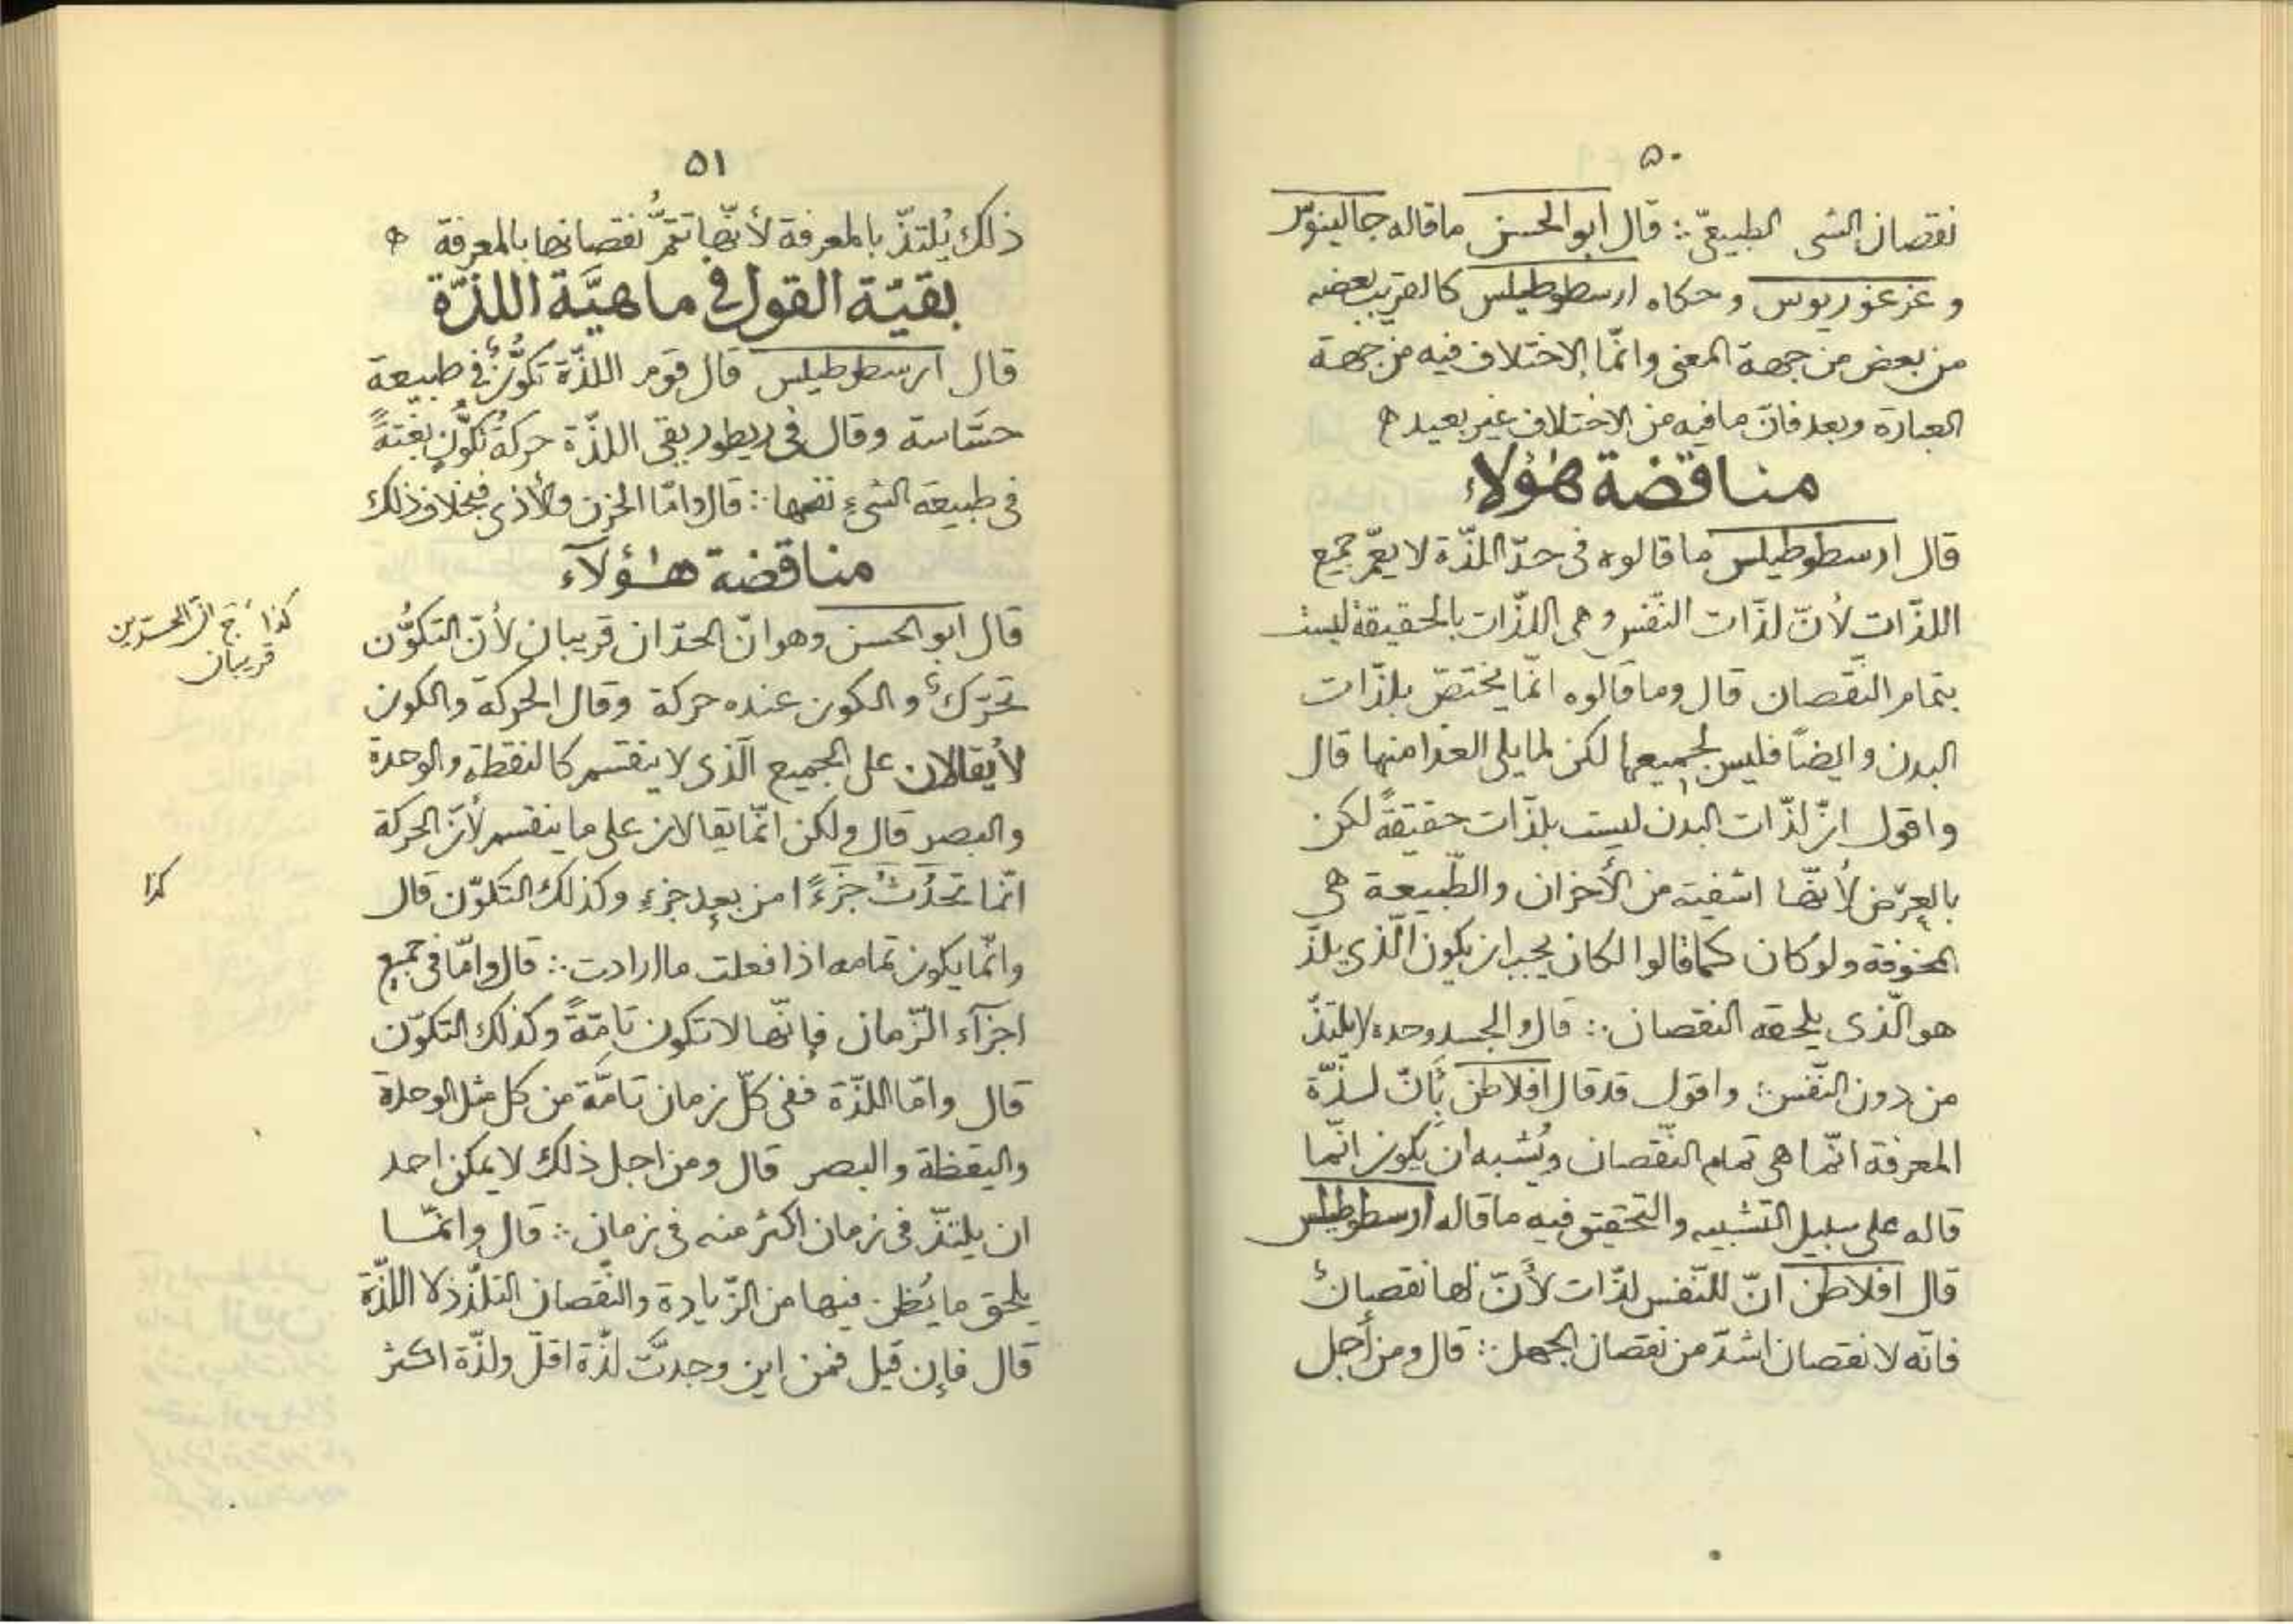 ۵۰
نقصان الشى الطبيعىّ ∴ قال ابو الحسن ماقاله جالينوس
و غرغوريوس وحكاه ارسطوطيلس كالقريب بعضه
من بعض من جهة المعنى وانّما الاختلاف فيه من جهة
العبارة وبعد فانّ مافيه من الاختلاف غير بعيد ه
مناقضة هؤلاء
قال ارسطوطيلس ما قالوه فى حدّ اللذّة لا يعمّ جميع
اللذّات لأنّ لذّات النّفس وهى اللذّات بالحقيقة ليست
بتمام النّقصان قال وما قالوه انّما يختصّ بلذّات
البدن وايضاً فليس لجميعها لكن لما يلى الغذا منها قال
واقول انّ لذّات البدن ليست بلذّات حقيقةً لكن
بالعرض لأنّها اشفية من الأحزان والطّبيعة هى
ولو كان كما قالوا لكان يجب ان يكون الّذى يلذّ
هو الّذى يلحقه النقصان ∴ قال والجسد وحده لا يلتذّ
من دون النّفس ∴ واقول قد قال افلاطن بأنّ لذّة
المعرفة انّما هى تمام النّقصان ويُشبه ان يكون انّما
قاله على سبيل التشبيه والتحقيق فيه ما قاله ارسطوطيلس
قال افلاطن انّ للنّفس لذّات لأنّ لها نقصانٌ
فانّه لا نقصان اشدّ من نقصان الجهل ∴ قال ومن أجل
۵۱
ذلك يُلتذّ بالمعرفة لأنّها تتمّ نقصانها بالمعرفة ه
بقيّة القول فى ماهيَّة اللذّة
قال ارسطوطيلس قال قوم اللذّة تكوُّنٌ فى طبيعة
حسَّاسة وقال فى ريطوريقى اللذّة حركةُ تكوُّنٍ بغتةً
فى طبيعة الشىءِ نفسها ∴ قال وامّا الحزن والأذى فبخلاف ذلك
مناقضة هؤلآء
قال ابو الحسن وهو انّ الحدّان قريبان لأنّ التكوُّن
تحرّكٌ والكون عنده حركة وقال الحركة والكون
لا يُقالان على الجميع الّذى لا ينقسم كالنقطة والوحدة
والبصر قال ولكن انّما يقالان على ما ينقسم لأنّ الحركة
انّما تحدُثُ جزءًا من بعد جزءٍ وكذلك التكوّن قال
وانّما يكون تمامه اذا فعلت ما ارادت ∴ قال وامّا فى جميع
اجزآء الزّمان فإنّها لا تكون تامّةً وكذلك التكوّن
قال وامّا اللذّة ففى كلّ زمان تامَّة من كل مثل الوحدة
واليقظة والبصر قال ومن اجل ذلك لا يمكن احد
ان يلتذّ فى زمان اكثر منه فى زمان ∴ قال وانّما
يلحق ما يُظن فيها من الزّيادة والنّقصان التلذّذ لا اللذّة
قال فإن قيل فمن اين وجدتَّ لذّة اقلّ ولذّة اكثر
كذا
قريبان
كذا